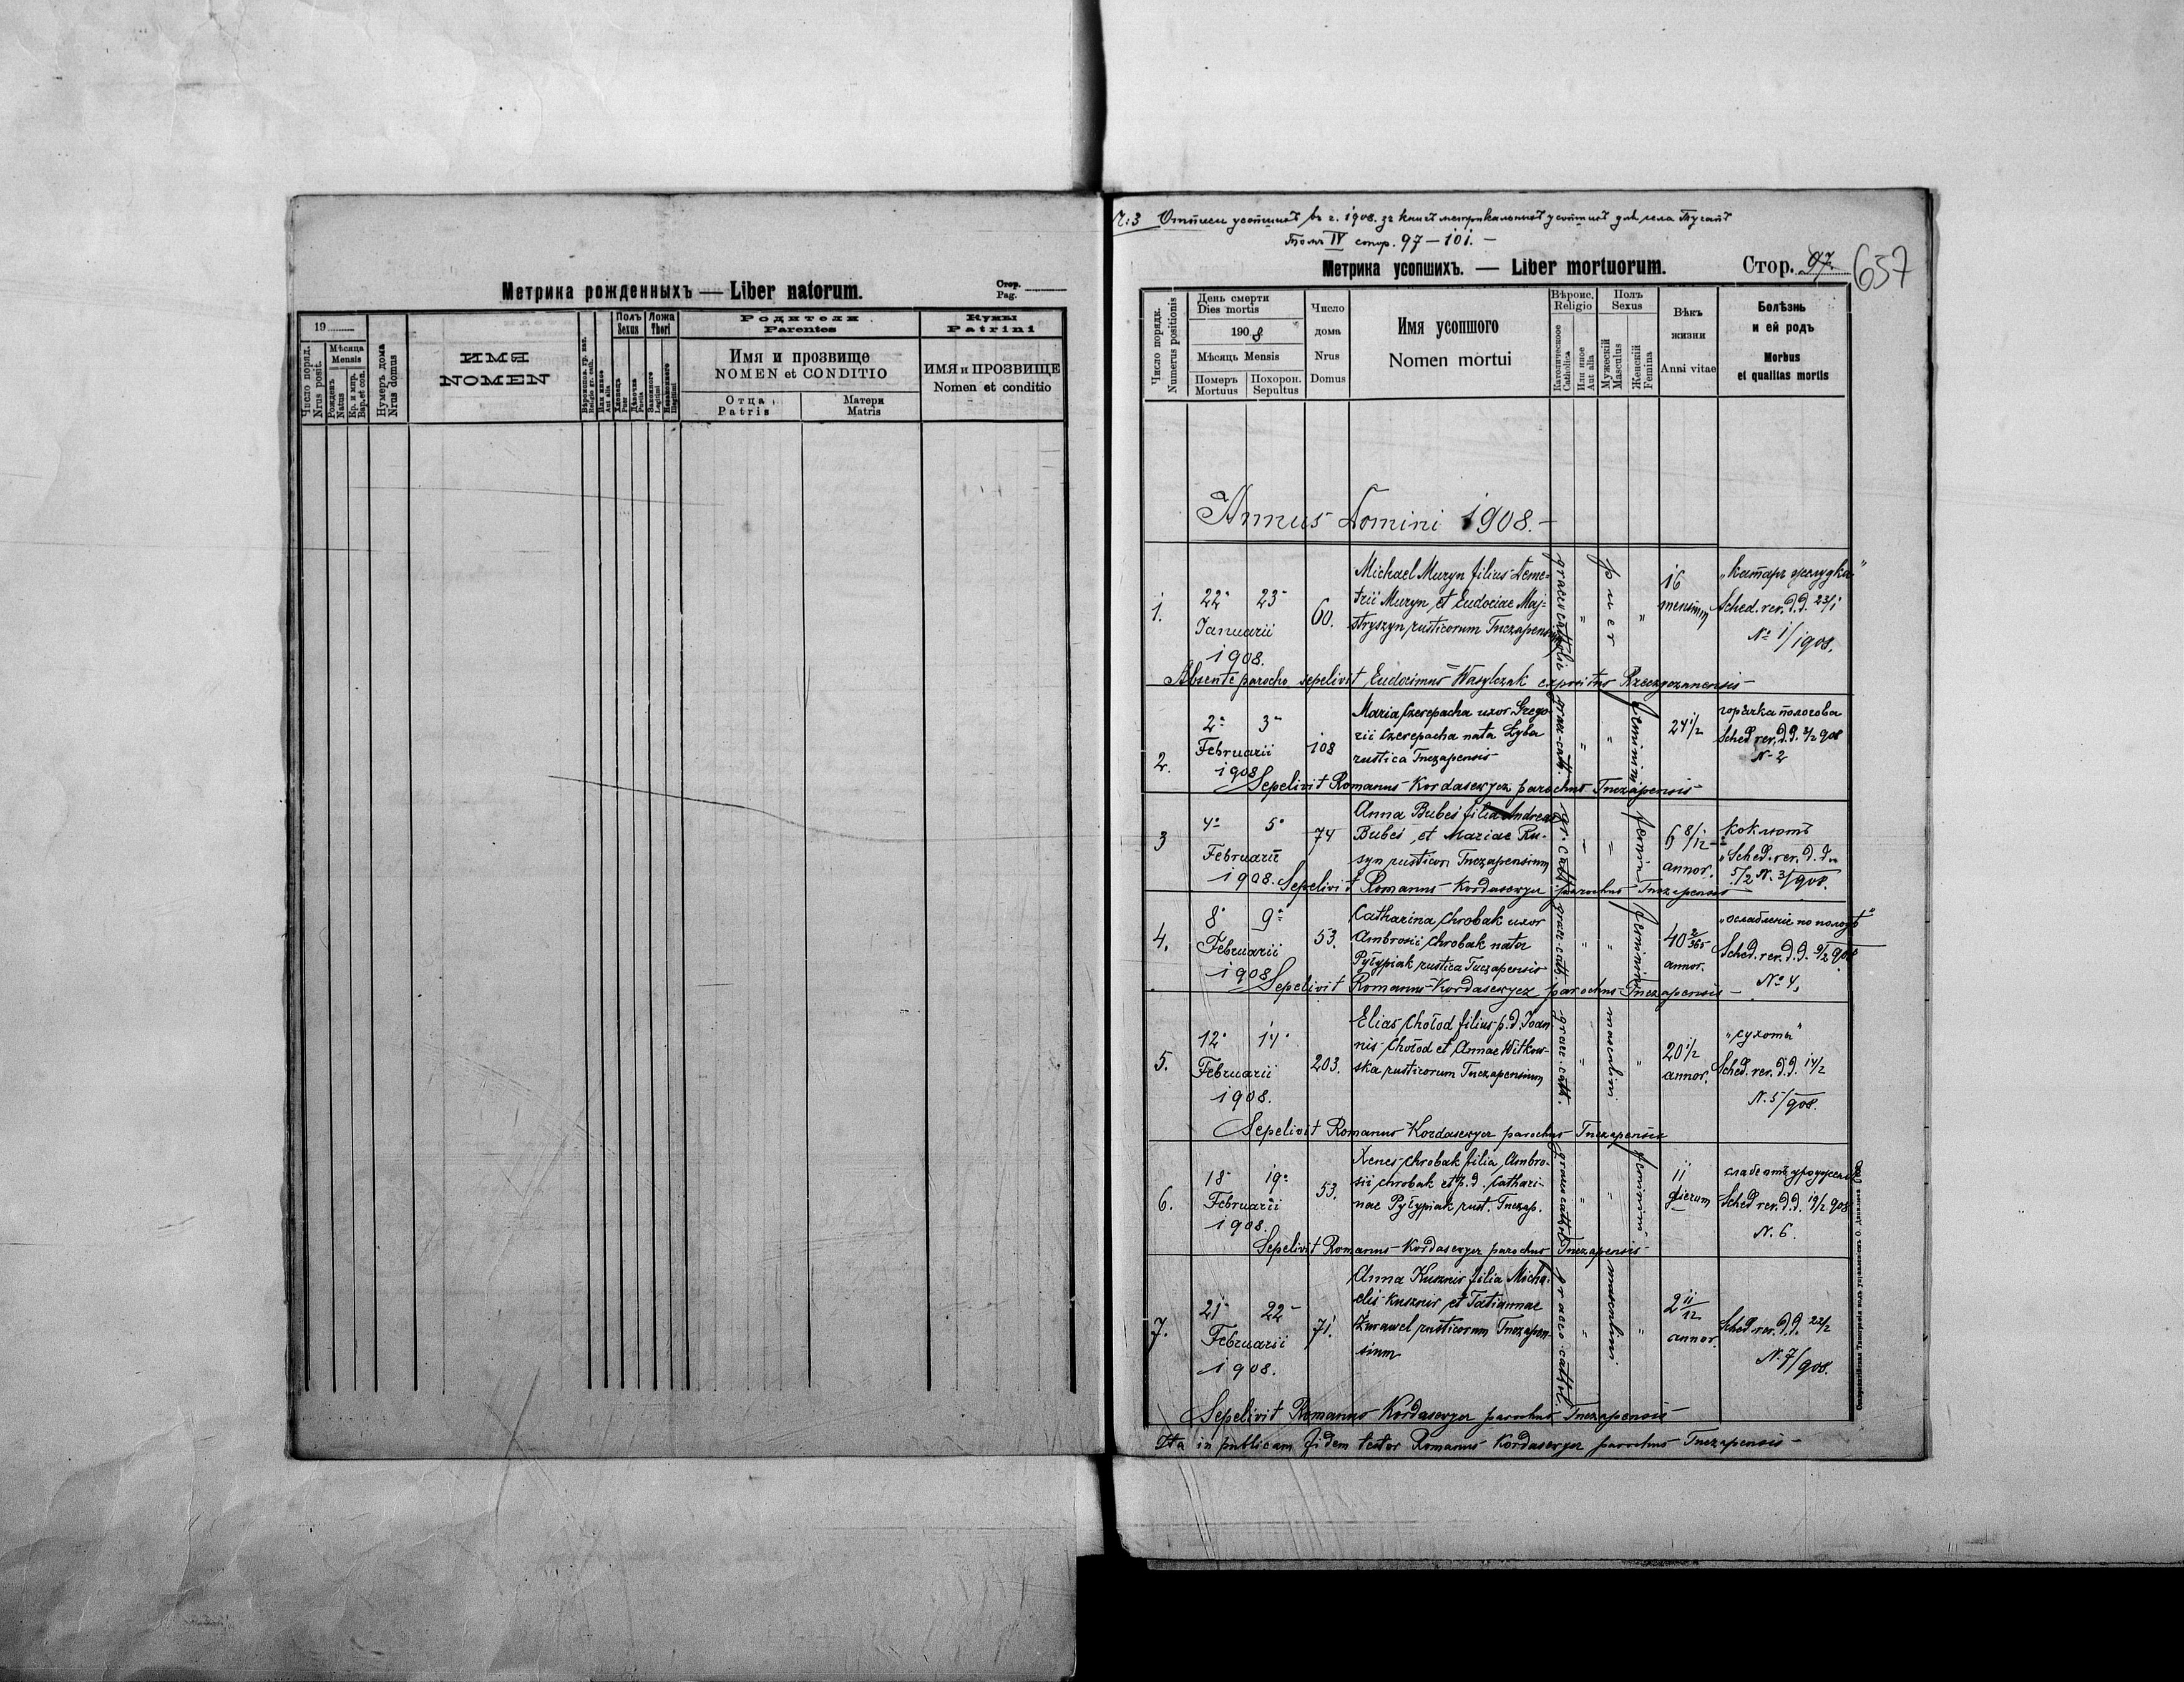 Метрика рожденныхъ — Liber natorum.
Стор.
Pag.
19
Число поряд.
Nrus posit.
Мѣсяца
Mensis
Рожденъ
Natus
Кр. и мир.
Bap. et con.
Нумеръ дома
Nrus domus
ИМЯ
NOMEN
Или иное
Aut alia
Полъ
Sexus
Хлопецъ
Puer
Дѣвочка
Puella
Ложа
Thori
Законного
Legitimi
Незаконного
Illegitimi
Родители
Parentes
Имя и прозвище
NOMEN et CONDITIO
Отца
Patris
Матери
Matris
Кумы
Patrini
ИМЯ и ПРОЗВИЩЕ
Nomen et conditio
Ч: 3 въ г. 1908. зъ книгъ метрикальныхъ для села
Томъ IV стор. 97 — 101. —
Метрика усопшихъ. — Liber mortuorum.
Стор. 97.
657
Число порядк.
Numerus positionis
День смерти
Dies mortis
1908
Мѣсяцъ Mensis
Померъ
Mortuus
Похорон.
Sepultus
Число
дома
Nrus
Domus
Имя усопшого
Nomen mortui
Вѣроис.
Religio
Католическое
Catholica
Или иное
Aut alia
Полъ
Sexus
Мужескій
Masculus
Женскій
Femina
Вѣкъ
жизни
Anni vitae
Болѣзнь
и ей родъ
Morbus
et qualitas mortis
Annus Domini 1908. —
1.
22 23
Januarii
1908.
60.
Michael Muryn filius Deme-
trii Muryn, et Eudociae Maj-
stryszyn, rusticorum Tuczapensium
graeco catholic
"
puer
"
16
mensium
"Катаръ желудка"
Sched. rev. d.d. 23/1
No 1/1908.
Absente parocho sepelivit, Eudocimus Wasylczak expositus
2.
2 3
Februarii
1908
108
Maria Czerepacha uxor Grego-
rii Czerepacha nata Zyba
rustica Tuczapensis
graec.-cath.
"
"
feminini
24 1/2
горячка пологова
Sched rev. d.d. 3/2 908
N. 2
Sepelivit Romanus Kordasewycz parochus Tuczapensis
3
4 5
Februarii
1908.
74
Anna Bubeś filia Andreae
Bubeś, et Mariae Ru-
syn rusticor. Tuczapensium
gr. Cath
feminini
6 8/12
annor.
коклюшъ
"Sched. rev. d.d.
5/2 N. 3/908.
Sepelivit Romanus Kordasewycz parochus Tuczapensis
4.
8 9
Februarii
1908
53.
Catharina Chrobak uxor
Ambrosii Chrobak nata
Pyłypiak rustica Tuczapensis
graec-cath.
"
"
feminini
40 2/365
annor.
"ослабленіе по пологѣ"
Sched. rev. d.d. 9/2 908
No 4,
Sepelivit Romanus Kordasewycz parochus Tuczapensis —
5.
12 14
Februarii
1908.
203.
Elias Chołod filius p.d. Joan-
nis Chołod et Annae Witkow-
ska, rusticorum Tuczapensium
graec-cath.
"
masculini
"
20 1/2
annor.
"сухоты"
Sched. rev. d.d. 14/2
N. 5/908.
Sepelivit Romanus Kordasewycz parochus Tuczapensis
6.
18 19
Februarii
1908.
53.
Xenes Chrobak filia Ambro-
sii Chrobak et p.d. Cathari-
nae Pyłypiak, rust. Tuczap.
graeco cathol.
"
"
feminini
11
dierum
Sched rev. d.d. 19/2 908
N. 6.
Sepelivit Romanus Kordasewycz parochus Tuczapensis
7.
21 22
Februarii
1908.
71.
Anna Kusznir filia Micha-
elis Kusznir, et Tatiannae
Żurawel, rusticorum Tuczapen-
sium
graeco cathol.
"
masculini
"
2 11/12
annor.
Sched. rev. d.d. 22/2
N. 7/908.
Sepelivit Romanus Kordasewycz parochus Tuczapensis
Ita in publicam fidem testor Romanus Kordasewycz parochus Tuczapensis —